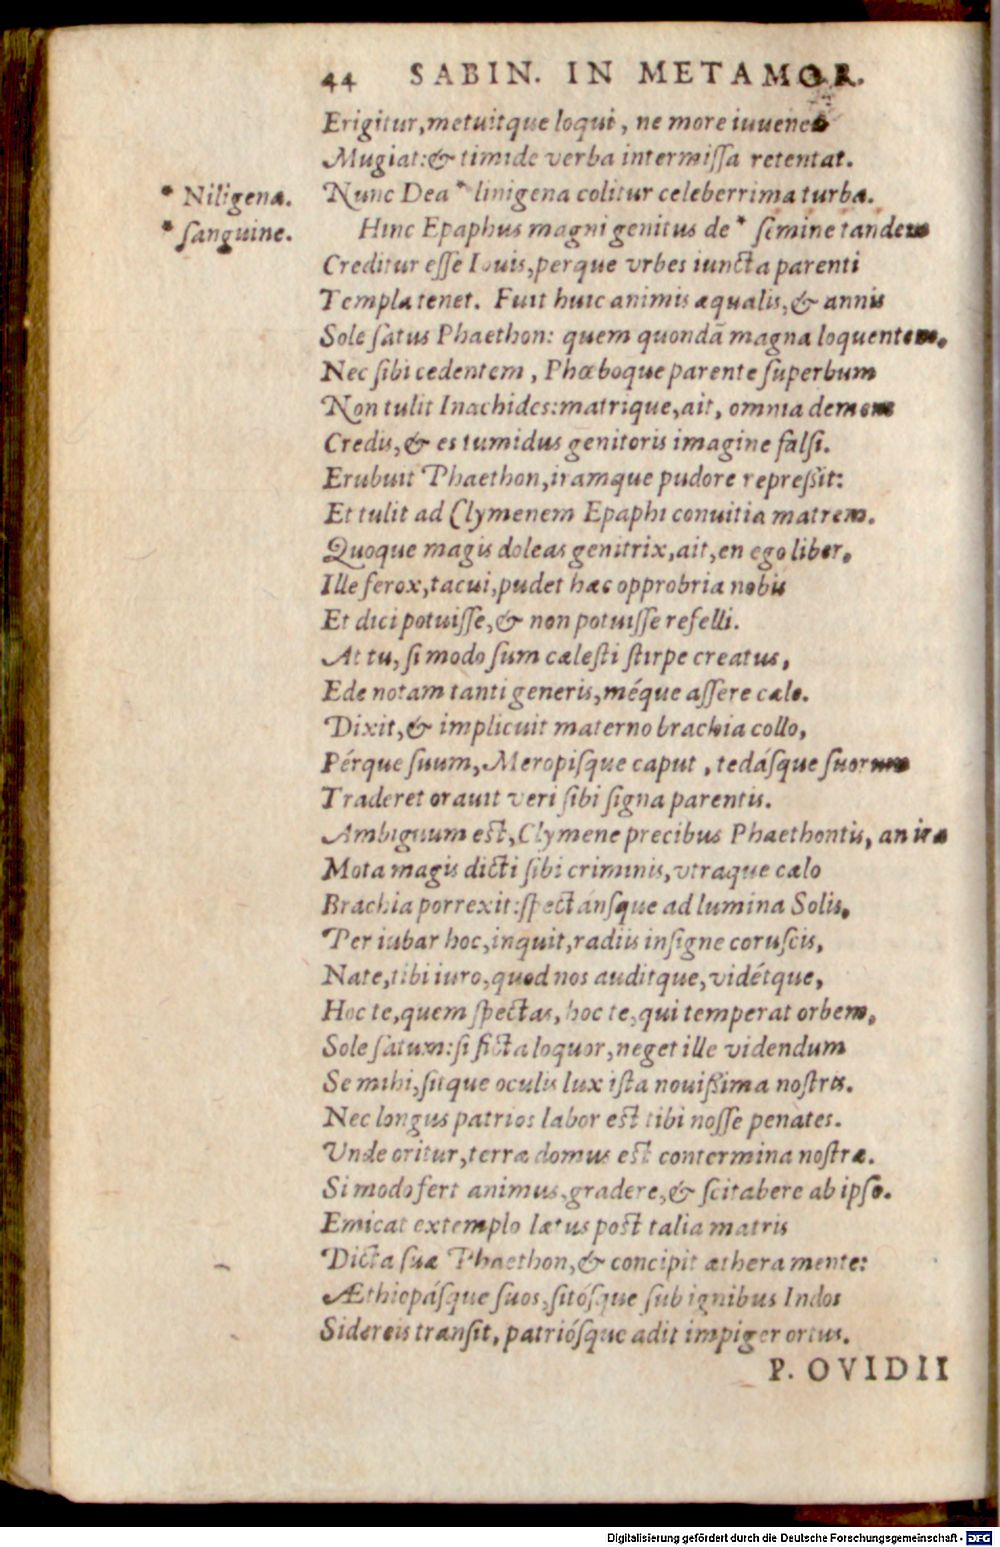 44 SABIN. IN METAMOR.
Erigitur, metuitque loqui, ne more iuuencæ
Mugiat: & timide verba intermiſſa retentat.
* Niligena. Nunc Dea * linigena colitur celeberrima turba.
* ſanguine. Hinc Epaphus magni genitus de * ſemine tandem
Creditur eſſe Iouis, perque vrbes iuncta parenti
Templa tenet. Fuit huic animis æqualis, & annis
Sole ſatus Phaethon: quem quondã magna loquentem,
Nec ſibi cedentem, Phœboque parente ſuperbum
Non tulit Inachides: matrique, ait, omnia demens
Credis, & es tumidus genitoris imagine falſi.
Erubuit Phaethon, iramque pudore repreſsit:
Et tulit ad Clymenem Epaphi conuitia matrem.
Quoque magis doleas genitrix, ait, en ego liber,
Ille ferox, tacui, pudet hæc opprobria nobis
Et dici potuiſſe, & non potuiſſe refelli.
At tu, ſi modo ſum cæleſti ſtirpe creatus,
Ede notam tanti generis, méque aſſere cælo.
Dixit, & implicuit materno brachia collo,
Pérque ſuum, Meropiſque caput, tedáſque ſuorum
Traderet orauit veri ſibi ſigna parentis.
Ambiguum eſt, Clymene precibus Phaethontis, an ira
Mota magis dicti ſibi criminis, vtraque cælo
Brachia porrexit: ſpectánſque ad lumina Solis,
Per iubar hoc, inquit, radiis inſigne coruſcis,
Nate, tibi iuro, quod nos auditque, vidétque,
Hoc te, quem ſpectas, hoc te, qui temperat orbem,
Sole ſatum: ſi ficta loquor, neget ille videndum
Se mihi, ſitque oculis lux iſta nouiſsima noſtris.
Nec longus patrios labor eſt tibi noſſe penates.
Vnde oritur, terræ domus eſt contermina noſtræ.
Si modo fert animus, gradere, & ſcitabere ab ipſo.
Emicat extemplo lætus poſt talia matris
Dicta ſuæ Phaethon, & concipit æthera mente:
Æthiopáſque ſuos, ſitóſque ſub ignibus Indos
Sidereis tranſit, patrióſque adit impiger ortus.
P. OVIDII
Digitalisierung gefördert durch die Deutsche Forschungsgemeinschaft - DFG